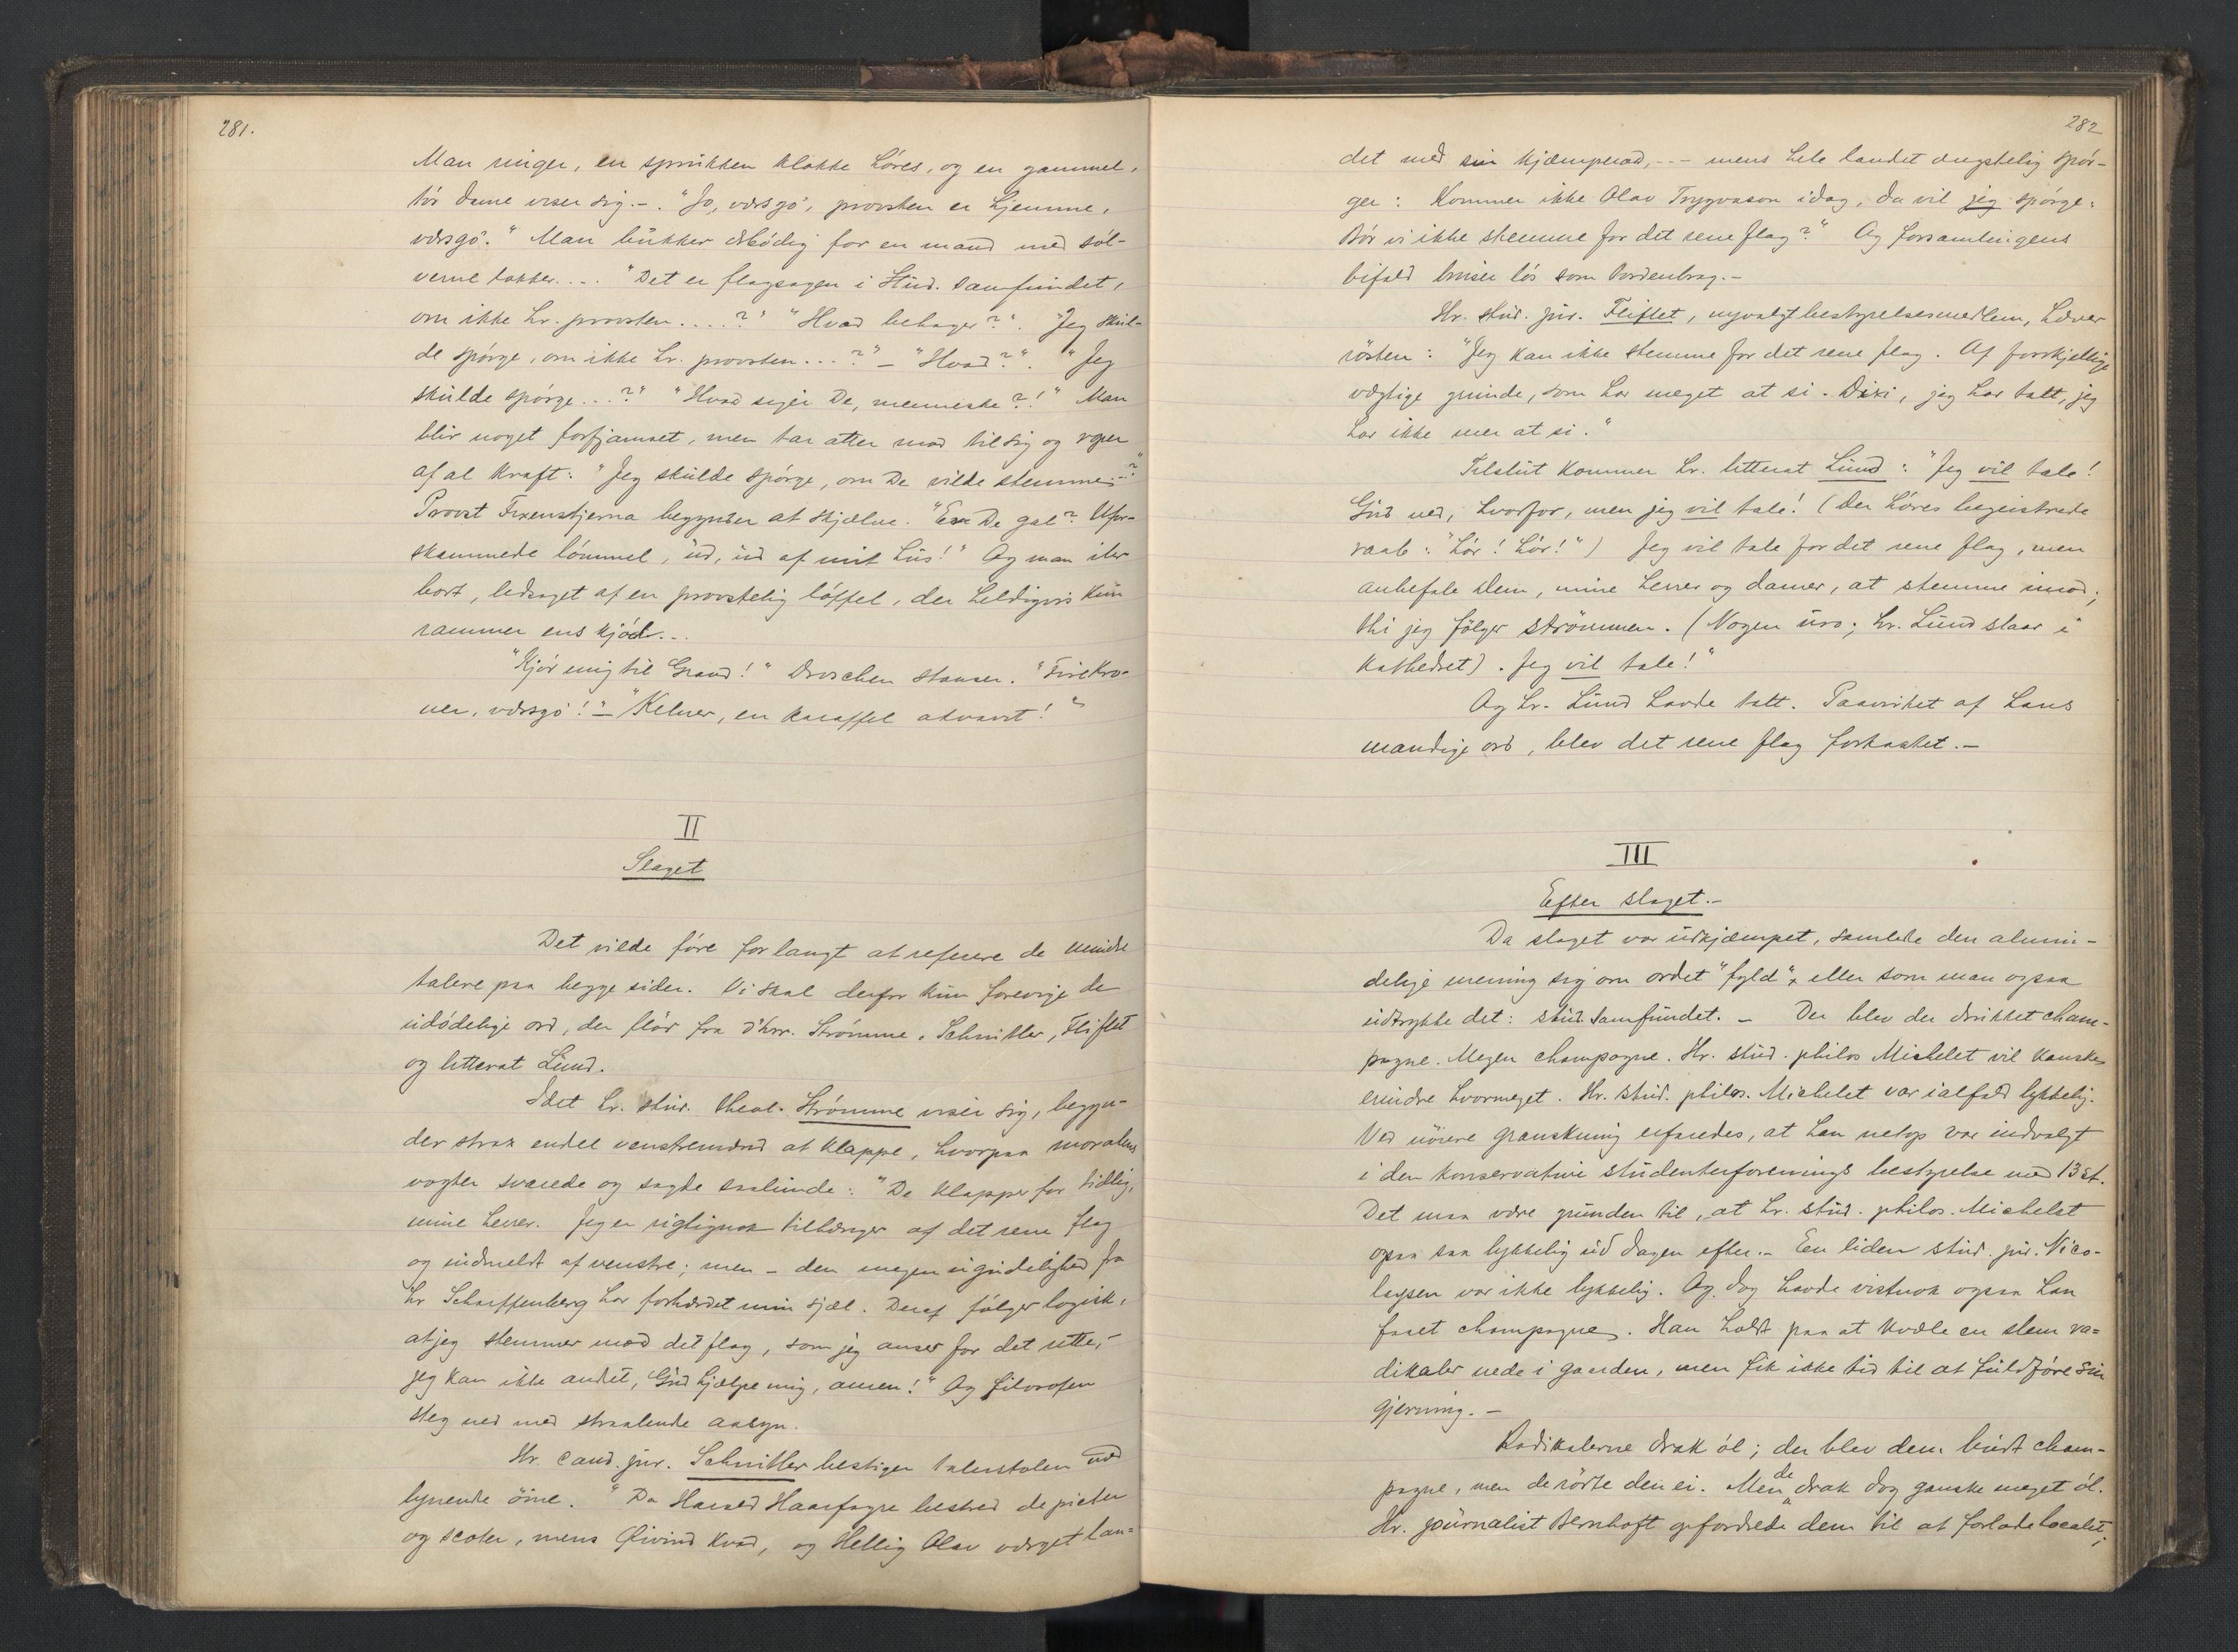 281.
Man ringer, en sprukken klokke høres, og en gammel,
tör dame viser sig. -. "Jo, værsgo', provsten er hjemme,
værsgo'." Man bukker ærbödig for en mand med söl-
verne lokker. . . . "Det er flagsagen i Stud. Samfundet,
om ikke hr. provsten. . . . ?" "Hvad behager?". "Jeg skul-
de spörge, om ikke hr. provsten. . . ?" - "Hvad?". "Jeg
skulde spörge. . . ?" "Hvad siger De, menneske?!" Man
blir noget forfjamset, men tar atter mod til sig og roper
af al kraft: "Jeg skulde spörge, om De vilde stemme...?"
Provst Firenstjerna begynder at skjælve. "Er De gal? Ufor-
skammede lömmel, ud, ud af mit hus!" Og man iler
bort, ledsaget af en provstelig töffel, der heldigvis kun
rammer ens kjöl...
"Kjör mig til Grand!" Droschen stanser. "Fire kro-
ner, værsgo'!" - "Kelner, en karaffel akvavit!"
II
Slaget
Det vilde före for langt at referere de mindre
talere paa begge sider. Vi skal derfor kun forevige de
udödelige ord, der flöd fra d'hrr. Strömme, Schnitler, Fliflet
og litterat Lund.
Idet hr. stud. theol. Strømme viser sig, begyn-
der strax endel venstremænd at klappe, hvorpaa moralens
vogter svarede og sagde saalunde: "De klapper for tidlig,
mine herrer. Jeg er rigtignok tilhænger af det rene flag
og indmeldt af venstre; men - den megen ugudelighed fra
hr Scharffenberg har forhærdet min sjæl. Deraf følger logisk,
at jeg stemmer mod det flag, som jeg anser for det rette, -
jeg kan ikke andet, Gud hjælpe mig, amen!" Og filosofen
steg ned med straalende aasyn.
Hr. cand. jur. Schnitler bestiger talerstolen med
lynende öine. "Da Harald Haarfagre bestred de picter
og scoter, mens Øivind kvad, og Hellig Olav værget lan-
282
det med sin kjæmperad, - - - mens hele landet ængstelig spör-
ger: Kommer ikke Olav Trygvason idag, da vil jeg spörge:
Bör vi ikke stemme for det rene flag?" Og forsamlingens
bifald bruser lös som tordenbrag. -
Hr. stud. jur. Fliflet, nyvalgt bestyrelsesmedlem, hæver
rösten: "Jeg kan ikke stemme for det rene flag. Af forskjellige
vægtige grunde, som har meget at si. Dixi, jeg har talt, jeg
har ikke mer at si."
Tilslut kommer hr. litterat Lund: "Jeg vil tale!
Gud ved, hvorfor, men jeg vil tale! (Der höres begeistrede
raab: "Hör! Hör!") Jeg vil tale for det rene flag, men
anbefale Dem, mine herrer og damer, at stemme imod;
thi jeg fölger strömmen. (Nogen uro; hr. Lund slaar i
kathedret). Jeg vil tale!"
Og hr. Lund havde talt. Paavirket af hans
mandige ord, blev det rene flag forkastet. -
III
Efter slaget. -
Da slaget var udkjæmpet, samlede den almin-
delige mening sig om ordet "fyld", eller som man ogsaa
udtrykte det: stud. Samfundet. - Der blev der drukket cham-
pagne. Megen champagne. Hr. stud. philos Michelet vil kanske
erindre hvormeget. Hr. stud. philos. Michelet var ialfald lykkelig.
Ved nöiere granskning erfaredes, at han netop var indvalgt
i den konservative studenterforenings bestyrelse med 13 st.
Det maa være grunden til, at hr. stud. philos. Michelet
ogsaa saa lykkelig ud dagen efter. - En liden stud. jur. Nico-
laysen var ikke lykkelig. Og dog havde vistnok ogsaa han
faaet champagne. Han holdt paa at kvæle en slem ra-
dikaler nede i gaarden, men fik ikke tid til at fuldföre sin
gjerning. -
Radikalerne drak öl; der blev dem budt cham-
pagne, men de rörte den ei. Men de drak dog ganske meget öl.
Hr. journalist Bernhoft opfordrede dem til at forlade localet;